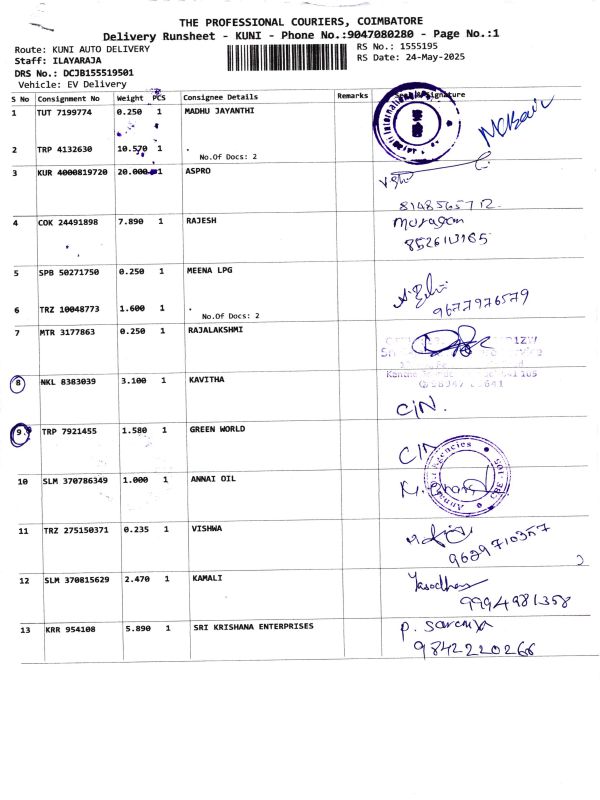 THE PROFESSIONAL COURIERS, COIMBATORE
Delivery Runsheet - KUNI - Phone No.:9047080280 - Page No.:1
Route: KUNI AUTO DELIVERY
RS No.: 1555195
Staff: ILAYARAJA
RS Date: 24-May-2025
DRS No.: DCJB155519501
Vehicle: EV Delivery
S No Consignment No Weight PCS Consignee Details Remarks Signature
1 TUT 7199774 0.250 1 MADHU JAYANTHI
2 TRP 4132630 10.570 1 .
No.Of Docs: 2
3 KUR 4000819720 20.000 1 ASPRO
4 COK 24491898 7.890 1 RAJESH
Murugan
5 SPB 50271750 0.250 1 MEENA LPG
6 TRZ 10048773 1.600 1 .
No.Of Docs: 2
9677976579
7 MTR 3177863 0.250 1 RAJALAKSHMI
8 NKL 8383039 3.100 1 KAVITHA
C/N.
9 TRP 7921455 1.580 1 GREEN WORLD
C/N
10 SLM 370786349 1.000 1 ANNAI OIL
Annai Agencies CBE - 105
11 TRZ 275150371 0.235 1 VISHWA
9629710357
12 SLM 370815629 2.470 1 KAMALI
Yasodha
9994981358
13 KRR 954108 5.890 1 SRI KRISHANA ENTERPRISES
P. Saranya
9842220266